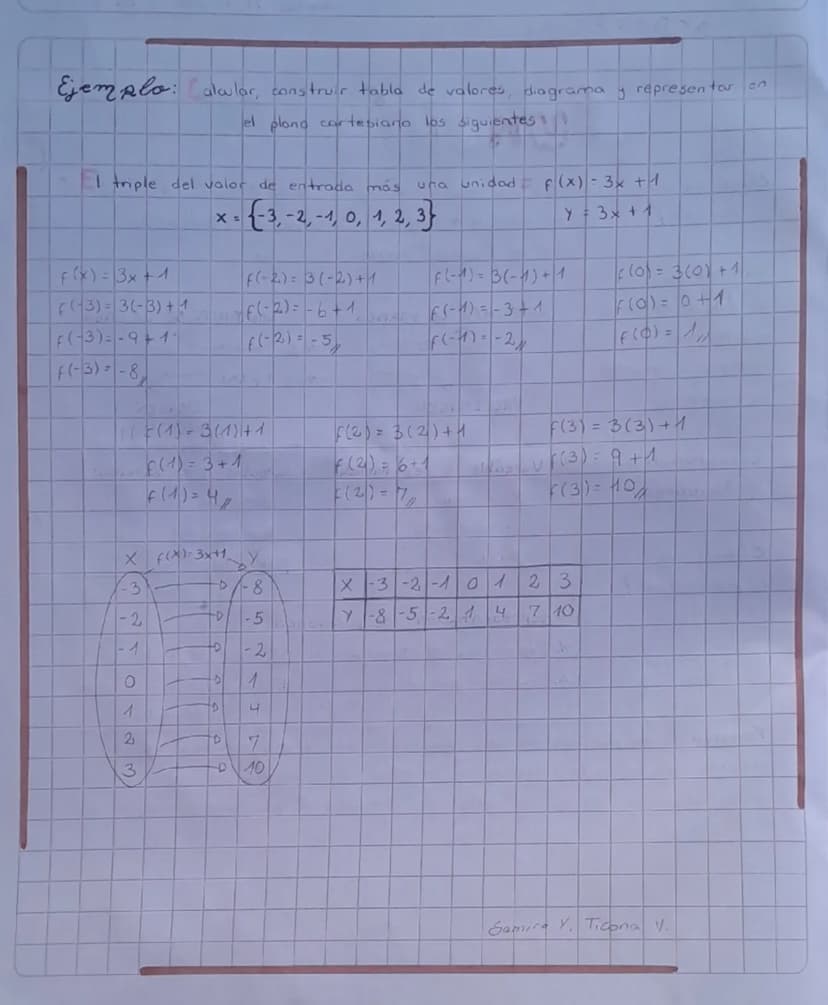 Ejemplo: Calcular, construir tabla de valores, diagrama y representar en
el plano cartesiano los siguientes:
El triple del valor de entrada más una unidad: f(x) = 3x + 1
x = {-3, -2, -1, 0, 1, 2, 3} y = 3x + 1
f(x) = 3x + 1 f(-2) = 3(-2) + 1 f(-1) = 3(-1) + 1 f(0) = 3(0) + 1
f(-3) = 3(-3) + 1 f(-2) = -6 + 1 f(-1) = -3 + 1 f(0) = 0 + 1
f(-3) = -9 + 1 f(-2) = -5 f(-1) = -2 f(0) = 1
f(-3) = -8
f(1) = 3(1) + 1 f(2) = 3(2) + 1 f(3) = 3(3) + 1
f(1) = 3 + 1 f(2) = 6 + 1 f(3) = 9 + 1
f(1) = 4 f(2) = 7 f(3) = 10
X f(x) = 3x+1 Y
-3 -8
-2 -5
-1 -2
0 1
1 4
2 7
3 10
X -3 -2 -1 0 1 2 3
Y -8 -5 -2 1 4 7 10
Samira Y. Ticona V.